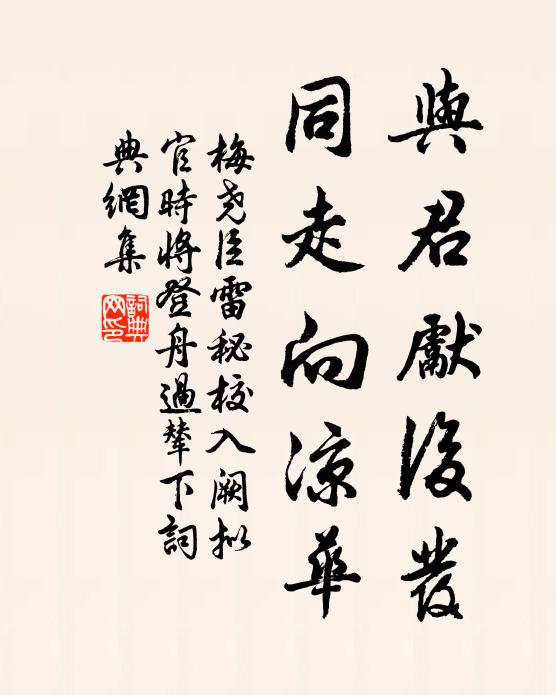 與君獻後發
同走向涼華
梅堯臣雷秘校入闕拟
官時將登舟過輦下詞
典網集
詞典网印